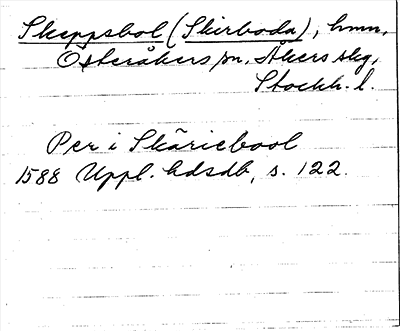 Skeppsbol (Skirboda), hmn,
Österåkers sn, Åkers skg,
Stockh. l.
Per i Skäriebool
1588 Uppl. hdsdb, s. 122.